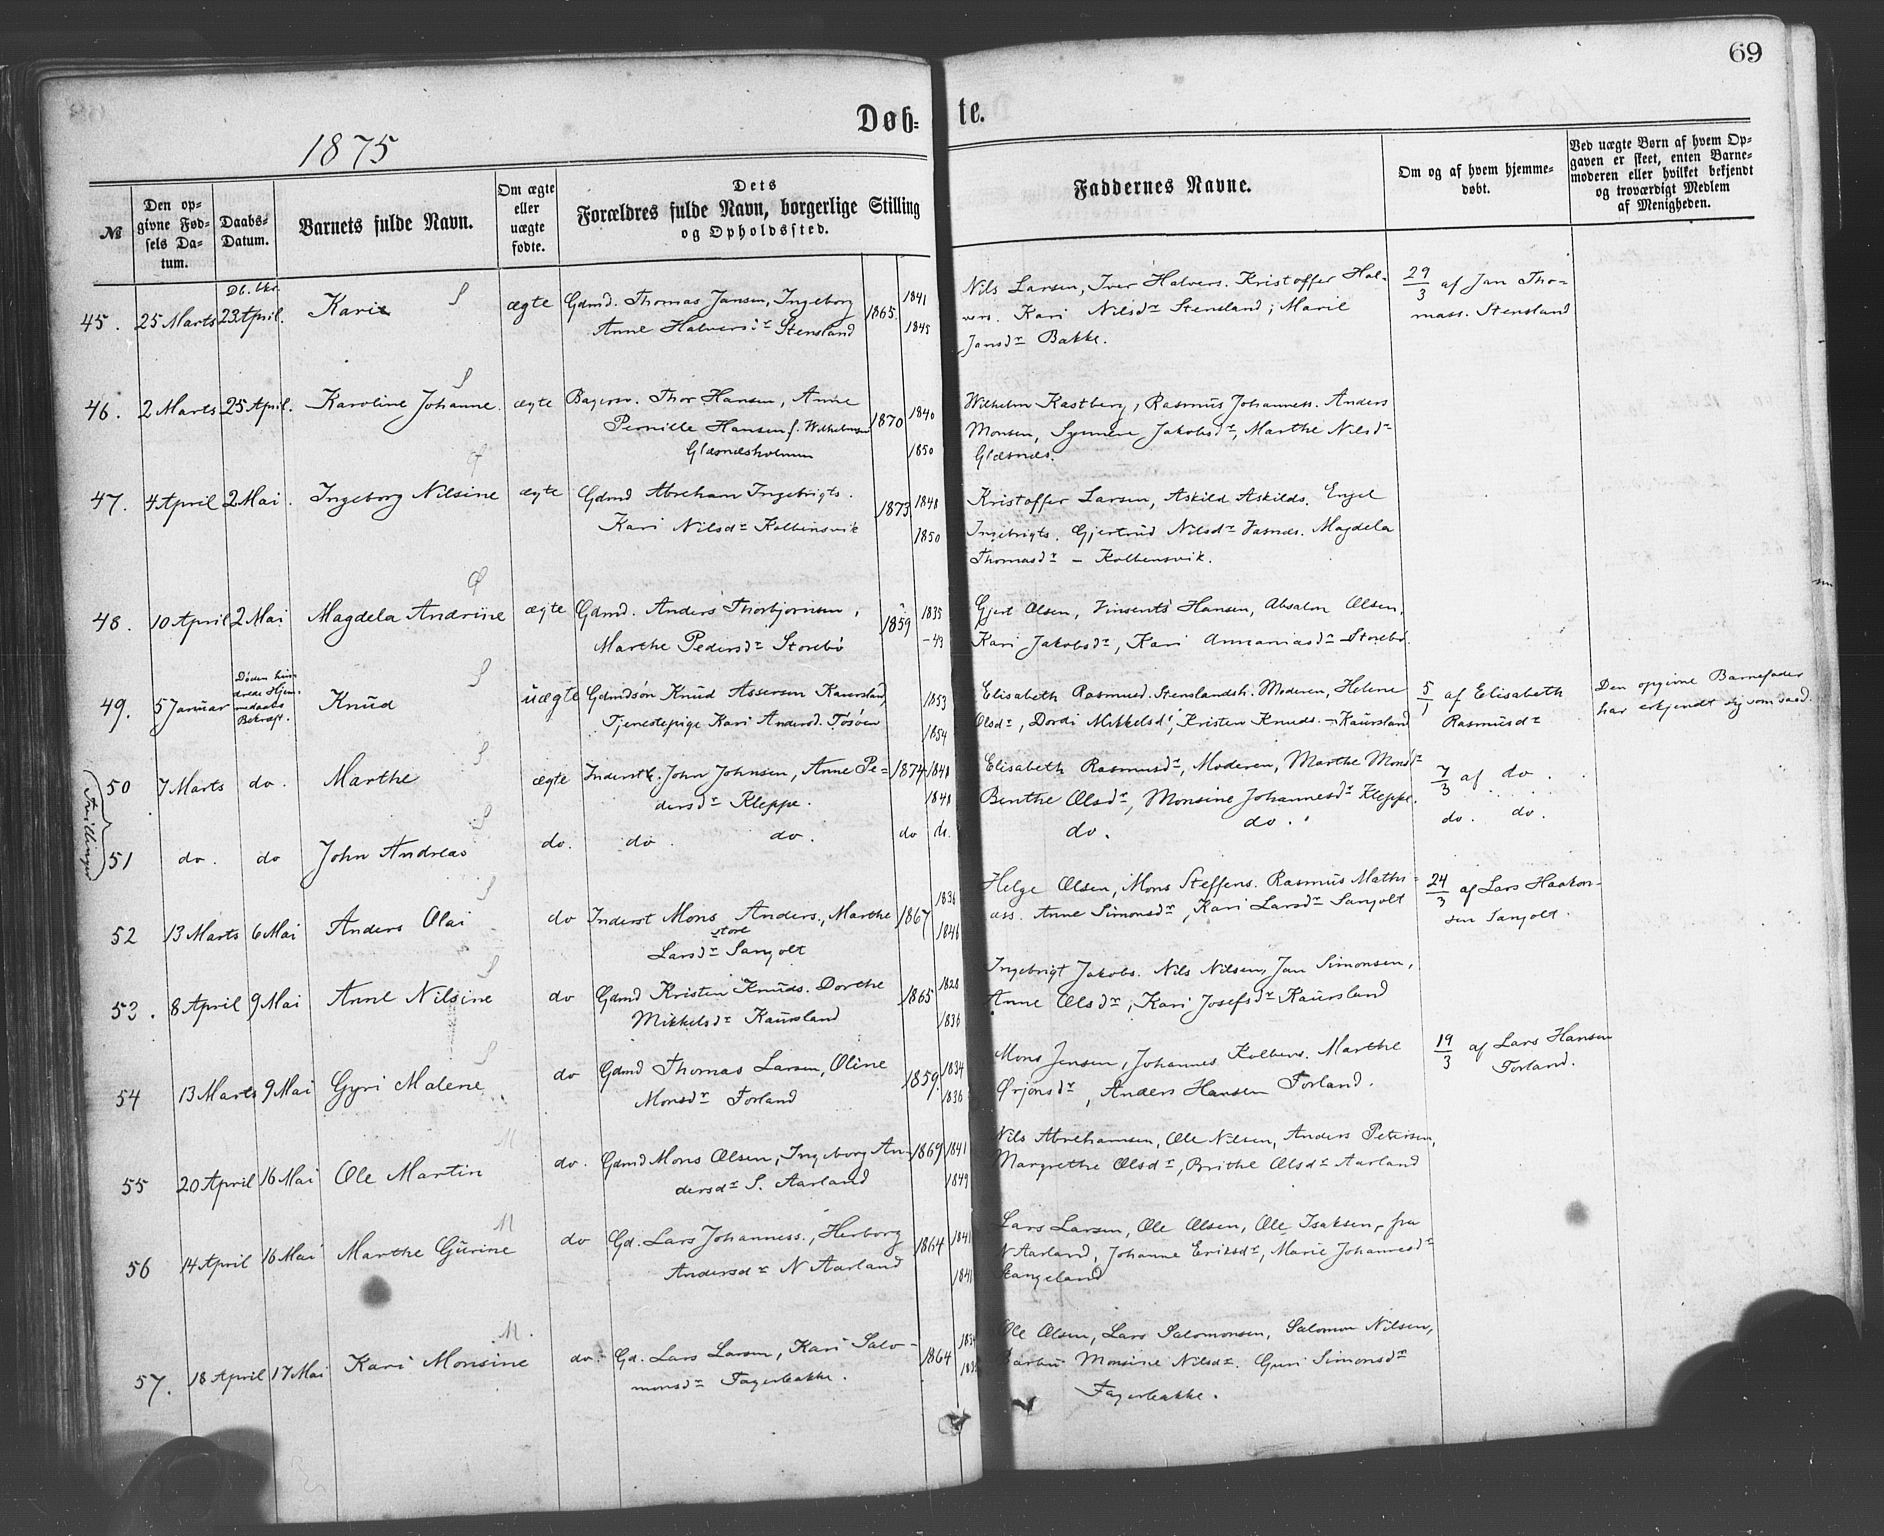 69
Døb- te.
1875
№
Den op-
givne Fød-
sels Da-
tum.
Daabs-
Datum.
Barnets fulde Navn.
Om ægte
eller
uægte
fødte.
Dets
Forældres fulde Navn, borgerlige Stilling
og Opholdssted.
Faddernes Navne.
Om og af hvem hjemme-
døbt.
Ved uægte Børn af hvem Op-
gaven er skeet, enten Barne-
moderen eller hvilket bekjendt
og troværdigt Medlem
af Menigheden.
45. 25 Marts 23 April. Karie S ægte Gdmd. Thomas Jansen, Ingeborg 1865. 1841
Anne Halversdr Stensland 1845
Nils Larsen, Iver Halvers. Kristoffer Hal-
vers. Kari Nilsdr Stensland; Marie
Jansdr Bakke.
29/3 af Jan Tho-
mass. Stensland
46. 2 Marts 25 April. Karoline Johanne S ægte Thor Hansen, Anne 1870 1840
Pernille Hansen f. Wilhelmsen 1850
Glæsnesholmen
Wilhelm Kastberg, Rasmus Johanness. Anders
Monsen, Synneve Jakobsdr, Marthe Nilsdr
Glæsnes.
47. 4 April 2 Mai. Ingeborg Nilsine ægte Gdmd Abreham Ingebrigts. 1873 1848
Kari Nilsdr Kolbensvik 1850
Kristoffer Larsen, Askild Askilds. Engel
Ingebrigts. Gjertrud Nilsdr Vasnes. Magdela
Thomasdr - Kolbensvik.
48. 10 April 2 Mai Magdela Andrine ægte Gdmd. Anders Thorbjørnsen, 1859 1835
Marthe Pedersdr Storebø -43
Gjert Olsen, Vinsents Hansen, Absalon Olsen,
Kari Jakobsdr, Kari Annaniasdr Storebø.
49. 5 Januar Døden hin-
drede Hjem-
medaabs
Bekræft. Knud S uægte Gdmdsøn Knud Assersen Kaursland 1853
Tjenestepige Kari Andersd. Tøsøen 1854
Elisabeth Rasmusd. Stenslandsh. Moderen, Helene
Olsdr, Dordi Mikkelsdr, Kristen Knuds. - Kaursland
5/1 af Elisabeth
Rasmusdr
Den opgivne Barnefader
har erkjendt sig som saad.
Trillinger
50 7 Marts do. Marthe S ægte Inderst. John Johnsen, Anne Pe- 1874 1848
dersdr Kleppe. 1848
Elisabeth Rasmusdr, Moderen, Marthe Monsdr
Benthe Olsdr, Monsine Johannesdr Kleppe.
7/3 af do.
51 do. do John Andreas S do. do. do. do do.
do. do.
do. do.
52 13 Marts 6 Mai Anders Olai S do Inderst Mons Anders., Marthe 1867 1836
store
Larsdr Sangolt 1846
Helge Olsen, Mons Steffens. Rasmus Mathi-
ass. Anne Simonsdr, Kari Larsdr Sangolt
24/3 af Lars Haakon-
sen Sangolt.
53. 8 April 9 Mai Anne Nilsine S do Gdmd Kristen Knuds. Dorthe 1865 1828
Mikkelsdr Kaursland 1836
Ingebrigt Jakobs. Nils Nilsen, Jan Simonsen,
Anne Olsdr, Kari Josefsdr Kaursland
54 13 Marts 9 Mai Gyri Malene S do Gdmd Thomas Larsen, Oline 1859 1834
Monsdr Forland 1836
Mons Jensen, Johannes Kolbens. Marthe
Ørjansdr, Anders Hansen Forland.
19/3 af Lars Hansen
Forland.
55 20 April 16 Mai Ole Martin M do. Gdmd Mons Olsen, Ingeborg An- 1869 1841
dersdr S. Aarland 1849
Nils Abrehamsen, Ole Nilsen, Anders Petersen,
Margrethe Olsdr, Brithe Olsdr Aarland
56 14 April 16 Mai Marthe Gurine M do Gd. Lars Johanness., Herborg 1864 1841
Andersdr N Aarland 1841
Lars Larsen, Ole Olsen, Ole Isaksen, fra
N Aarland, Johanne Eriksdr, Marie Johannesdr
Stangeland
57. 18 April 17 Mai Kari Monsine M. do. Gd. Lars Larsen, Kari Salo- 1864
monsdr Fagerbakke.
Ole Olsen, Lars Salomonsen, Salomon Nilsen,
Barbro Monsine Nilsdr. Guri Simonsdr
Fagerbakke.